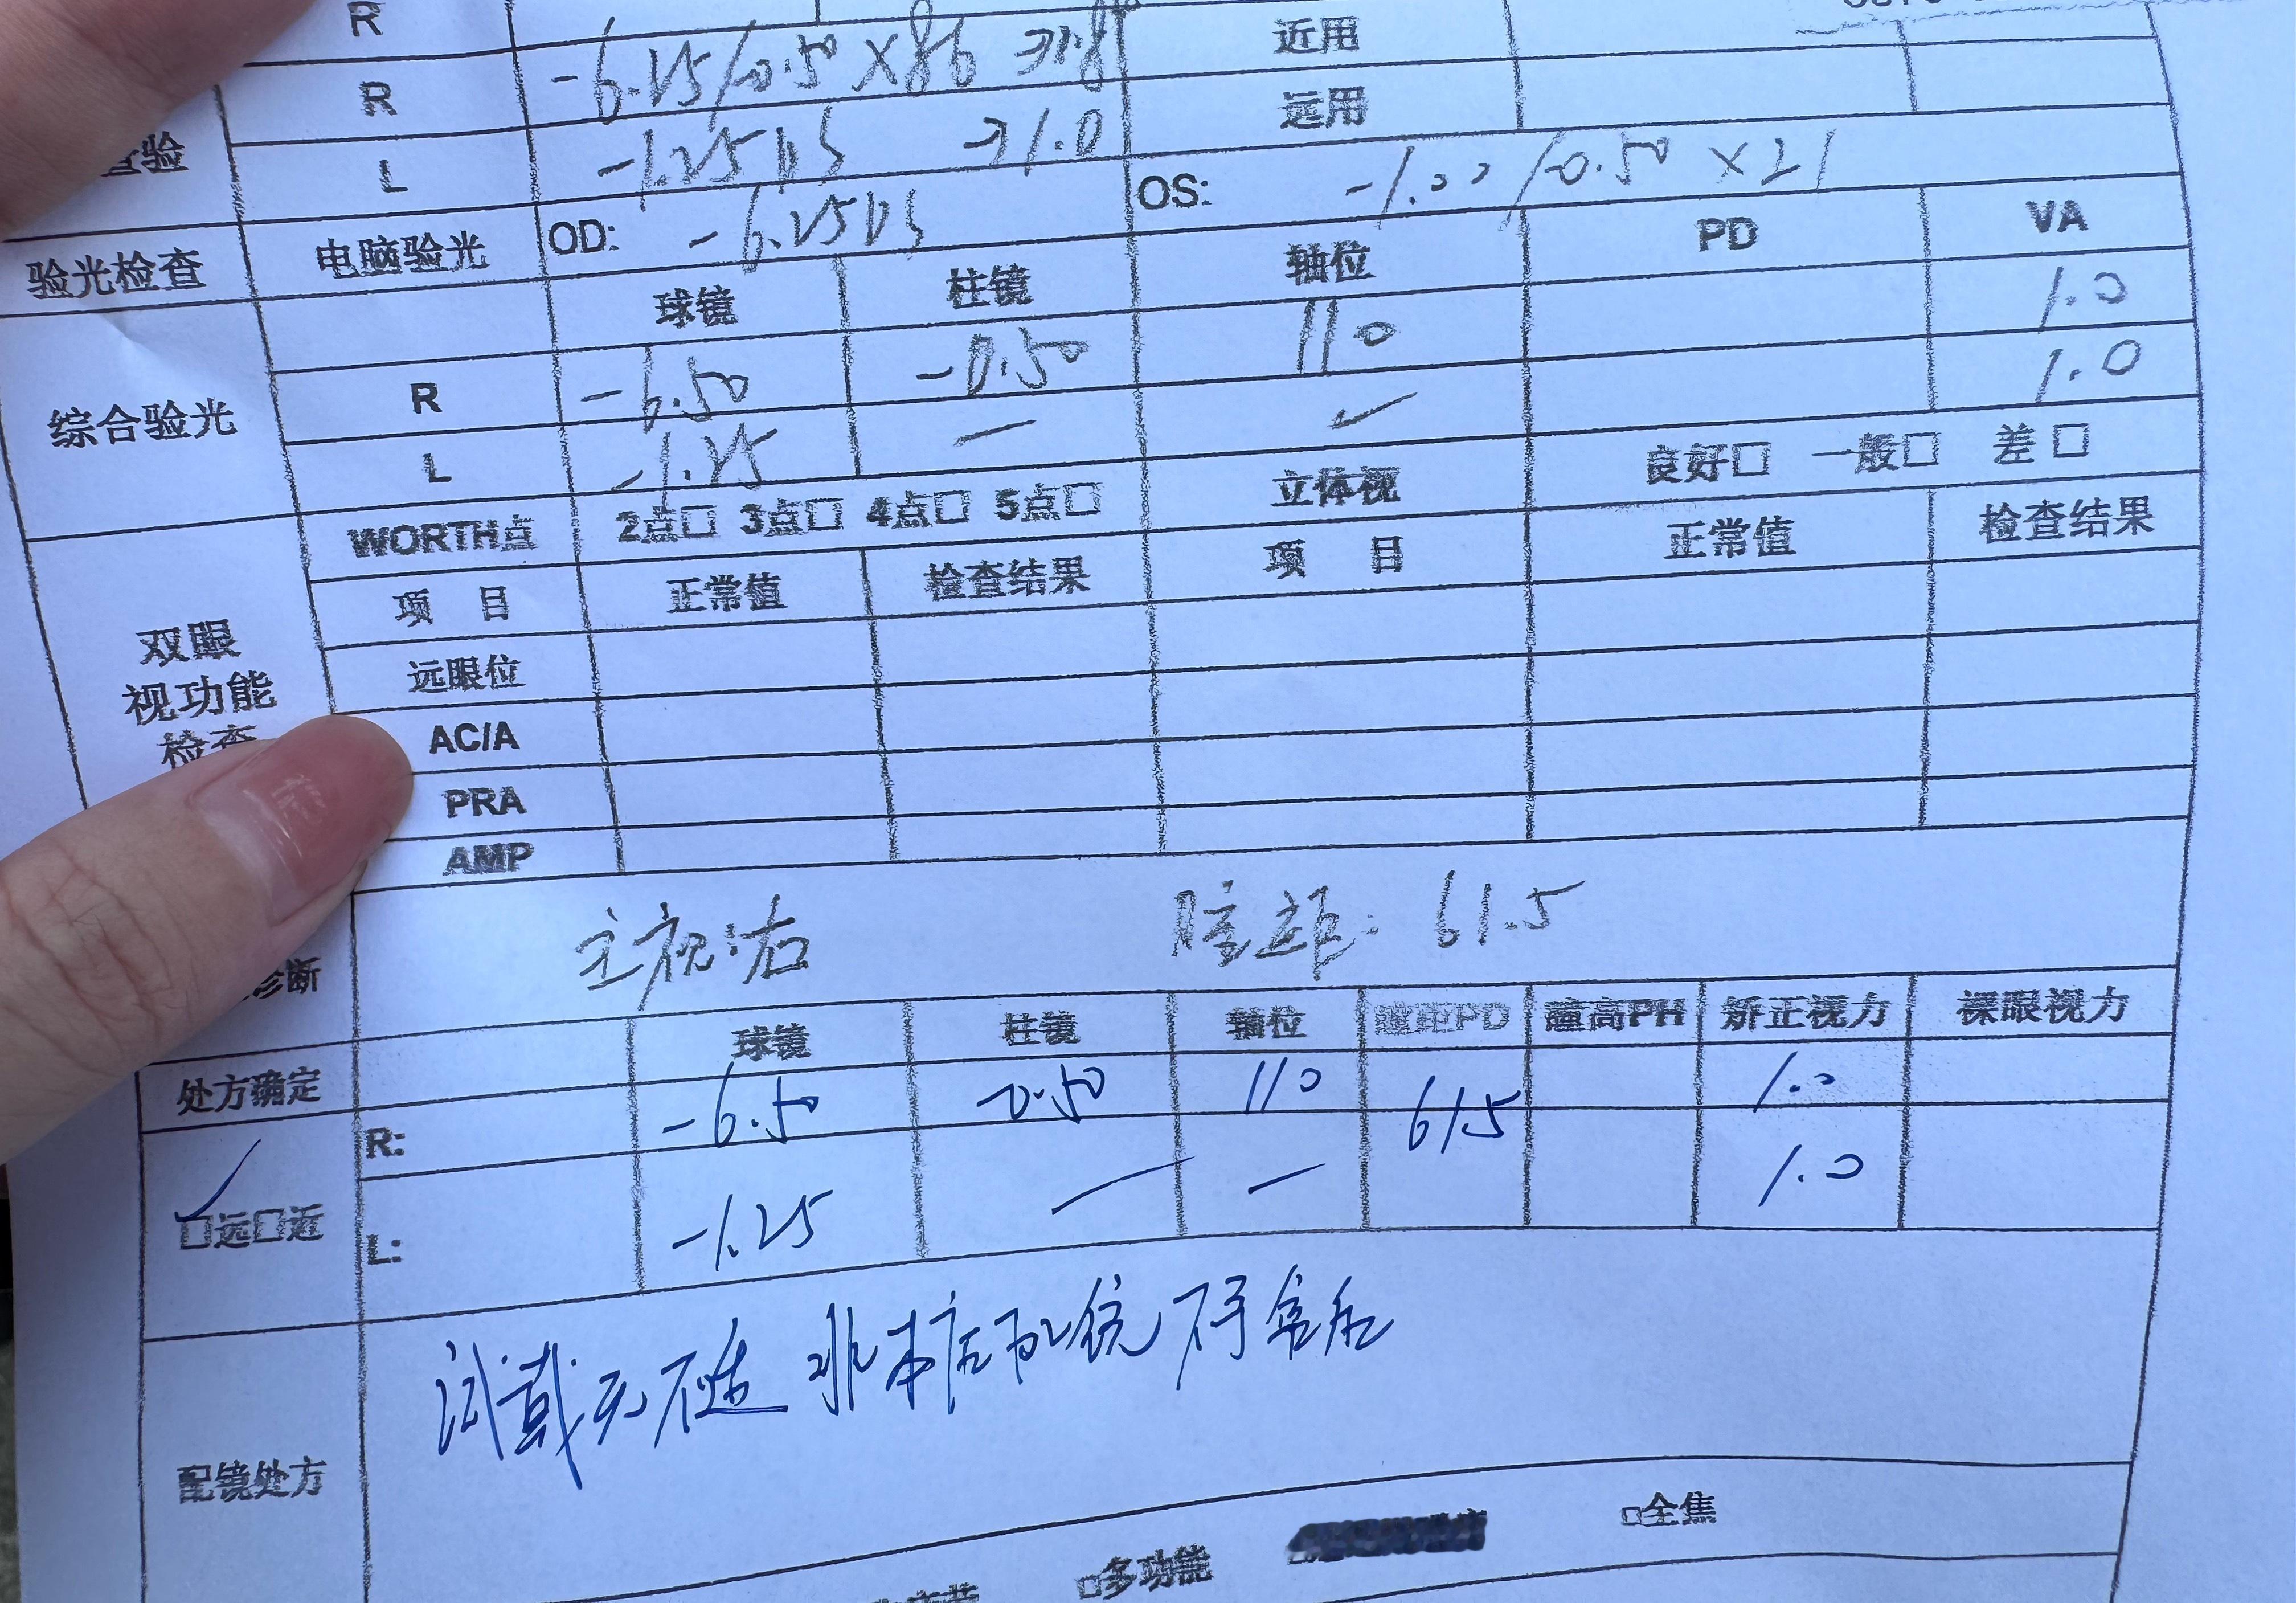 R
R -6.25/-0.50 X86 →1.0 近用
L -1.25DS →1.0 远用
查验
验光检查 电脑验光 OD: -6.25DS OS: -1.00/-0.50 X21
球镜 柱镜 轴位 PD VA
综合验光 R -6.50 -0.50 110 1.0
L -1.25 — 1.0
WORTH点 2点□ 3点□ 4点□ 5点□ 立体视 良好□ 一般□ 差□
双眼视功能检查
项 目 正常值 检查结果 项 目 正常值 检查结果
远眼位
AC/A
PRA
AMP
诊断 主视:右 瞳距: 61.5
处方确定 球镜 柱镜 轴位 瞳距PD 瞳高PH 矫正视力 裸眼视力
R: -6.50 -0.50 110 61.5 1.0
✓
□远□近 L: -1.25 — — 1.0
配镜处方 试戴无不适 非本店配镜 不予售后
□多功能 □全焦